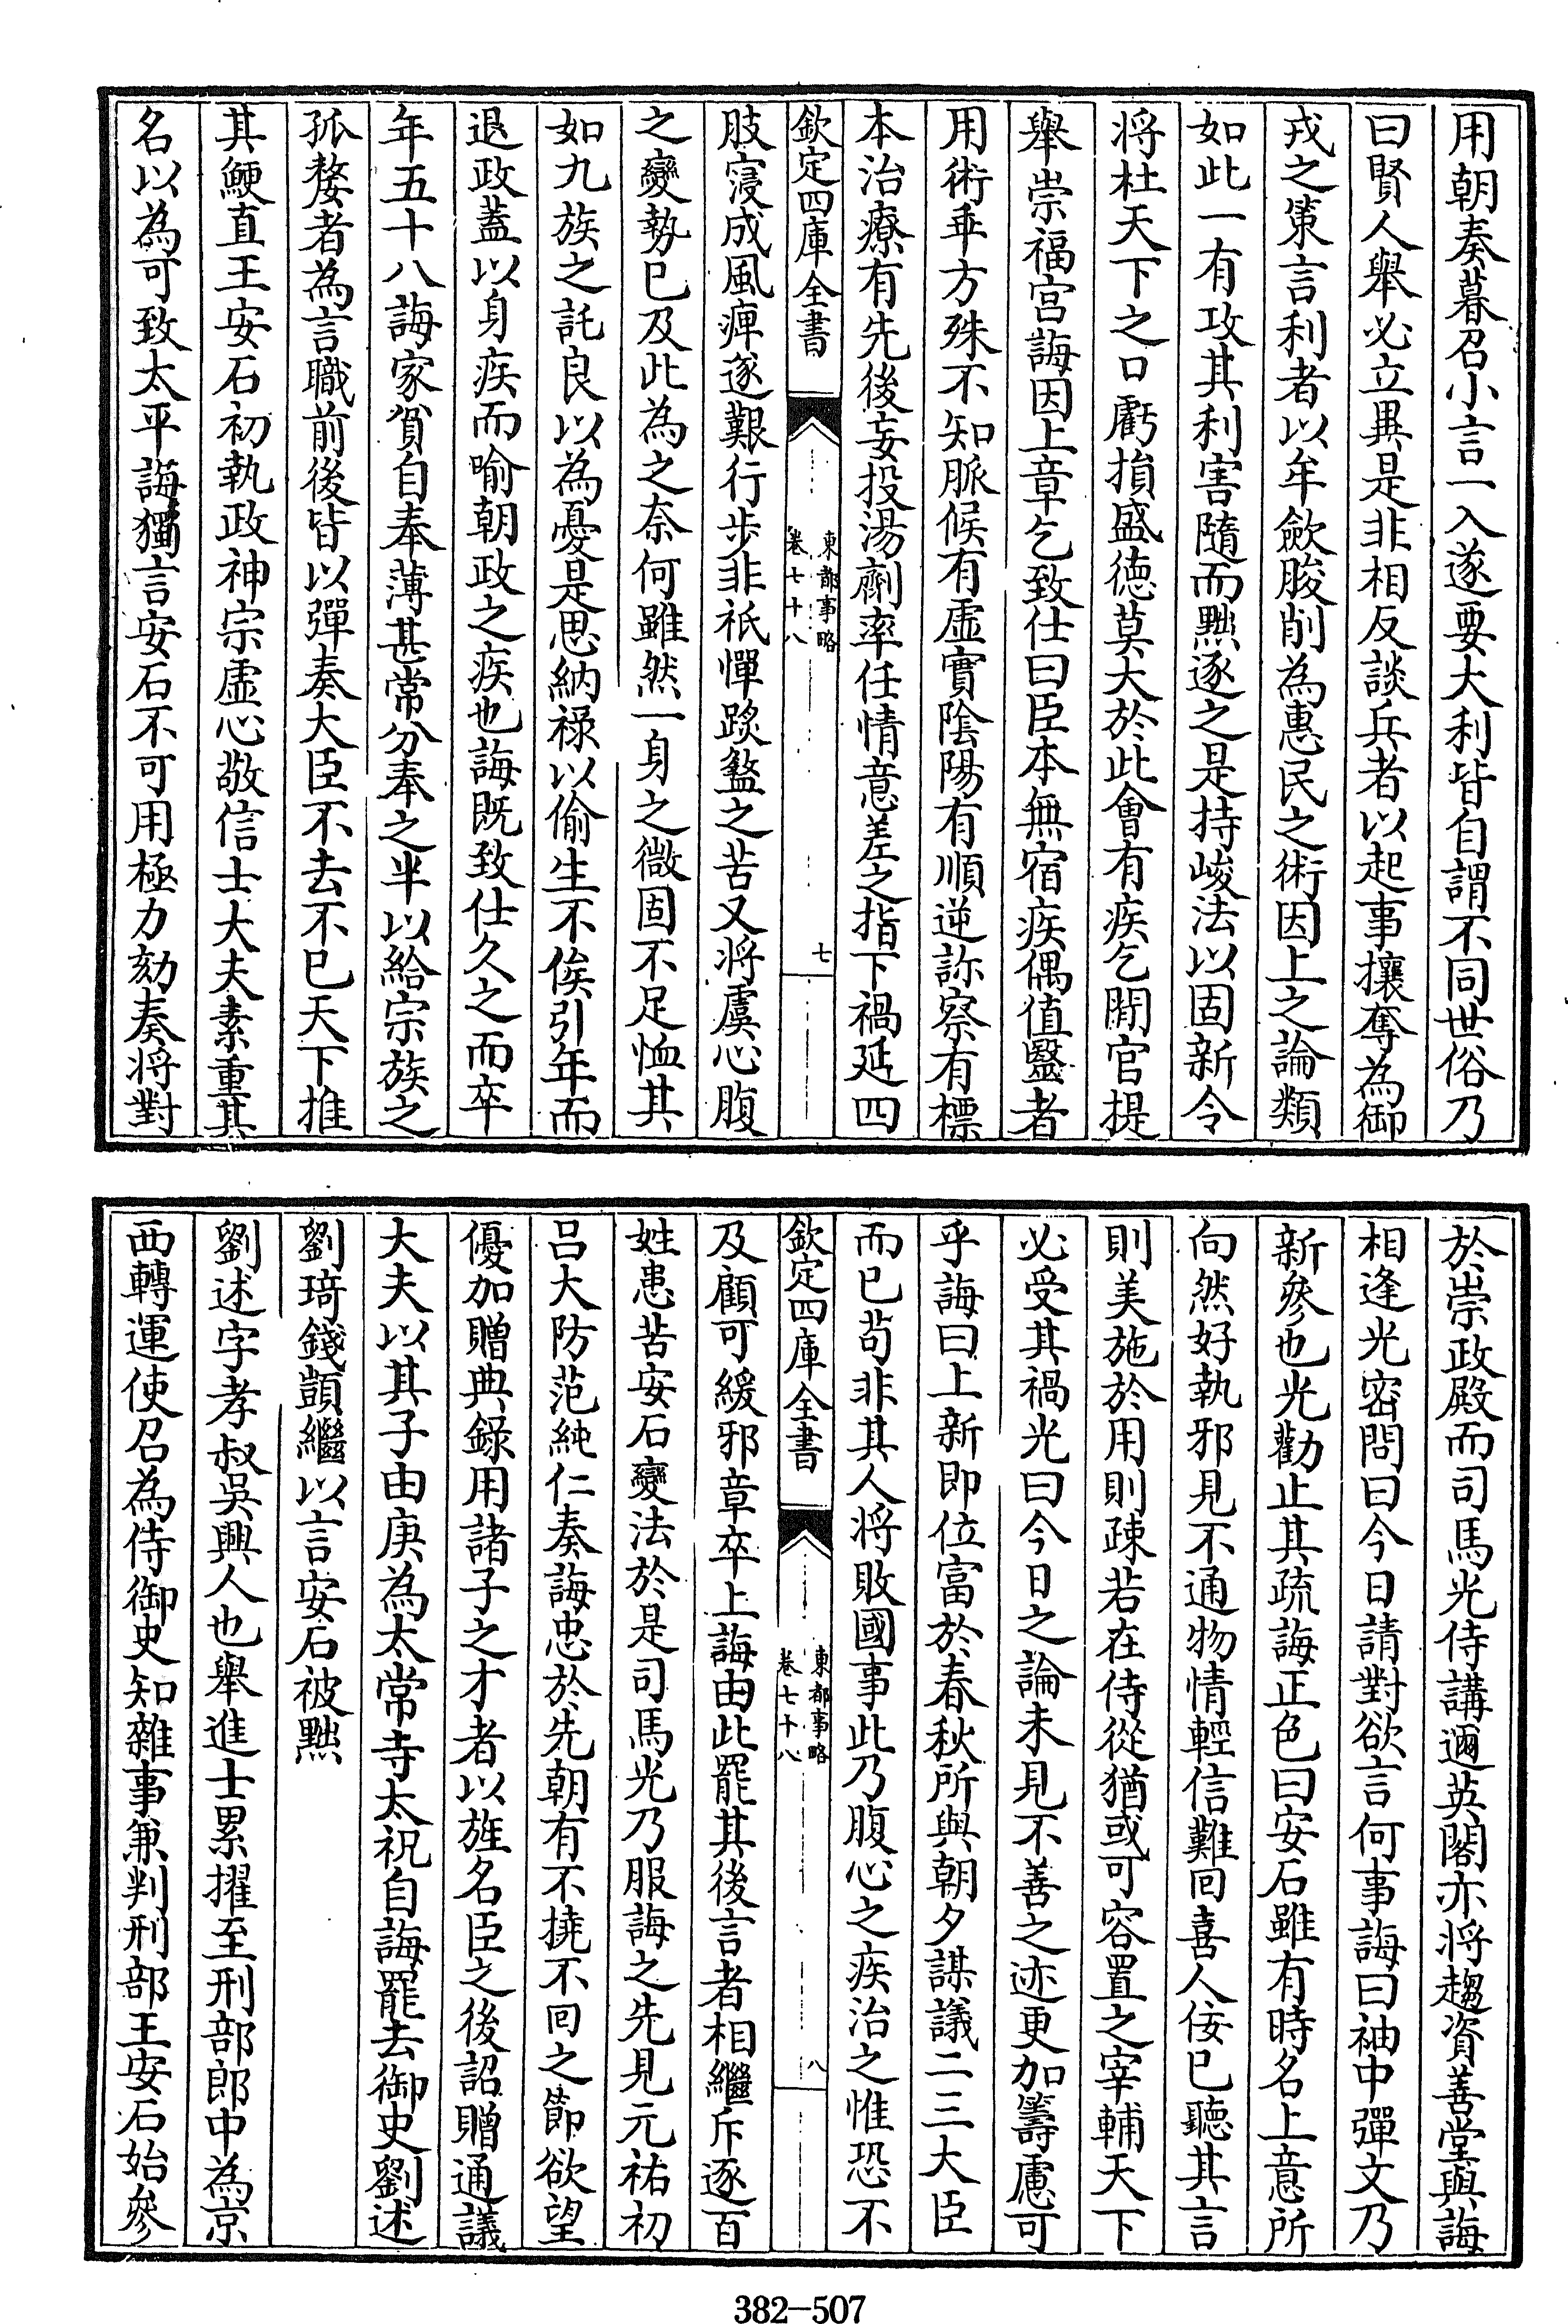 用朝奏暮召小言一入遂要大利皆自謂不同世俗乃
曰賢人舉必立異是非相反談兵者以起事攘奪為御
戎之策言利者以牟歛朘削為惠民之術因上之論類
如此一有攻其利害隨而黜逐之是持峻法以固新令
將杜天下之口虧損盛德莫大於此會有疾乞閒官提
舉崇福宮誨因上章乞致仕曰臣本無宿疾偶值毉者
用術乖方殊不知脈候有虛實陰陽有順逆診察有標
本治療有先後妄投湯劑率任情意差之指下禍延四
欽定四庫全書
東都事略
卷七十八
七
肢寖成風痺遂艱行步非祇憚𨂜盭之苦又將虞心腹
之變勢已及此為之奈何雖然一身之微固不足恤其
如九族之託良以為憂是思納祿以偷生不俟引年而
退政蓋以身疾而喻朝政之疾也誨既致仕久之而卒
年五十八誨家貧自奉薄甚常分奉之半以給宗族之
孤嫠者為言職前後皆以彈奏大臣不去不已天下推
其鯁直王安石初執政神宗虛心敬信士大夫素重其
名以為可致太平誨獨言安石不可用極力劾奏將對
於崇政殿而司馬光侍講邇英閣亦將趨資善堂與誨
相逢光密問曰今日請對欲言何事誨曰袖中彈文乃
新參也光勸止其疏誨正色曰安石雖有時名上意所
向然好執邪見不通物情輕信難回喜人佞已聽其言
則美施於用則疎若在侍從猶或可容置之宰輔天下
必受其禍光曰今日之論未見不善之迹更加籌慮可
乎誨曰上新即位富於春秋所與朝夕謀議二三大臣
而已苟非其人將敗國事此乃腹心之疾治之惟恐不
欽定四庫全書
東都事略
卷七十八
八
及顧可緩邪章卒上誨由此罷其後言者相繼斥逐百
姓患苦安石變法於是司馬光乃服誨之先見元祐初
呂大防范純仁奏誨忠於先朝有不撓不回之節欲望
優加贈典錄用諸子之才者以旌名臣之後詔贈通議
大夫以其子由庚為太常寺太祝自誨罷去御史劉述
劉琦錢顗繼以言安石被黜
劉述字孝叔吳興人也舉進士累擢至刑部郎中為京
西轉運使召為侍御史知雜事兼判刑部王安石始參
382—507